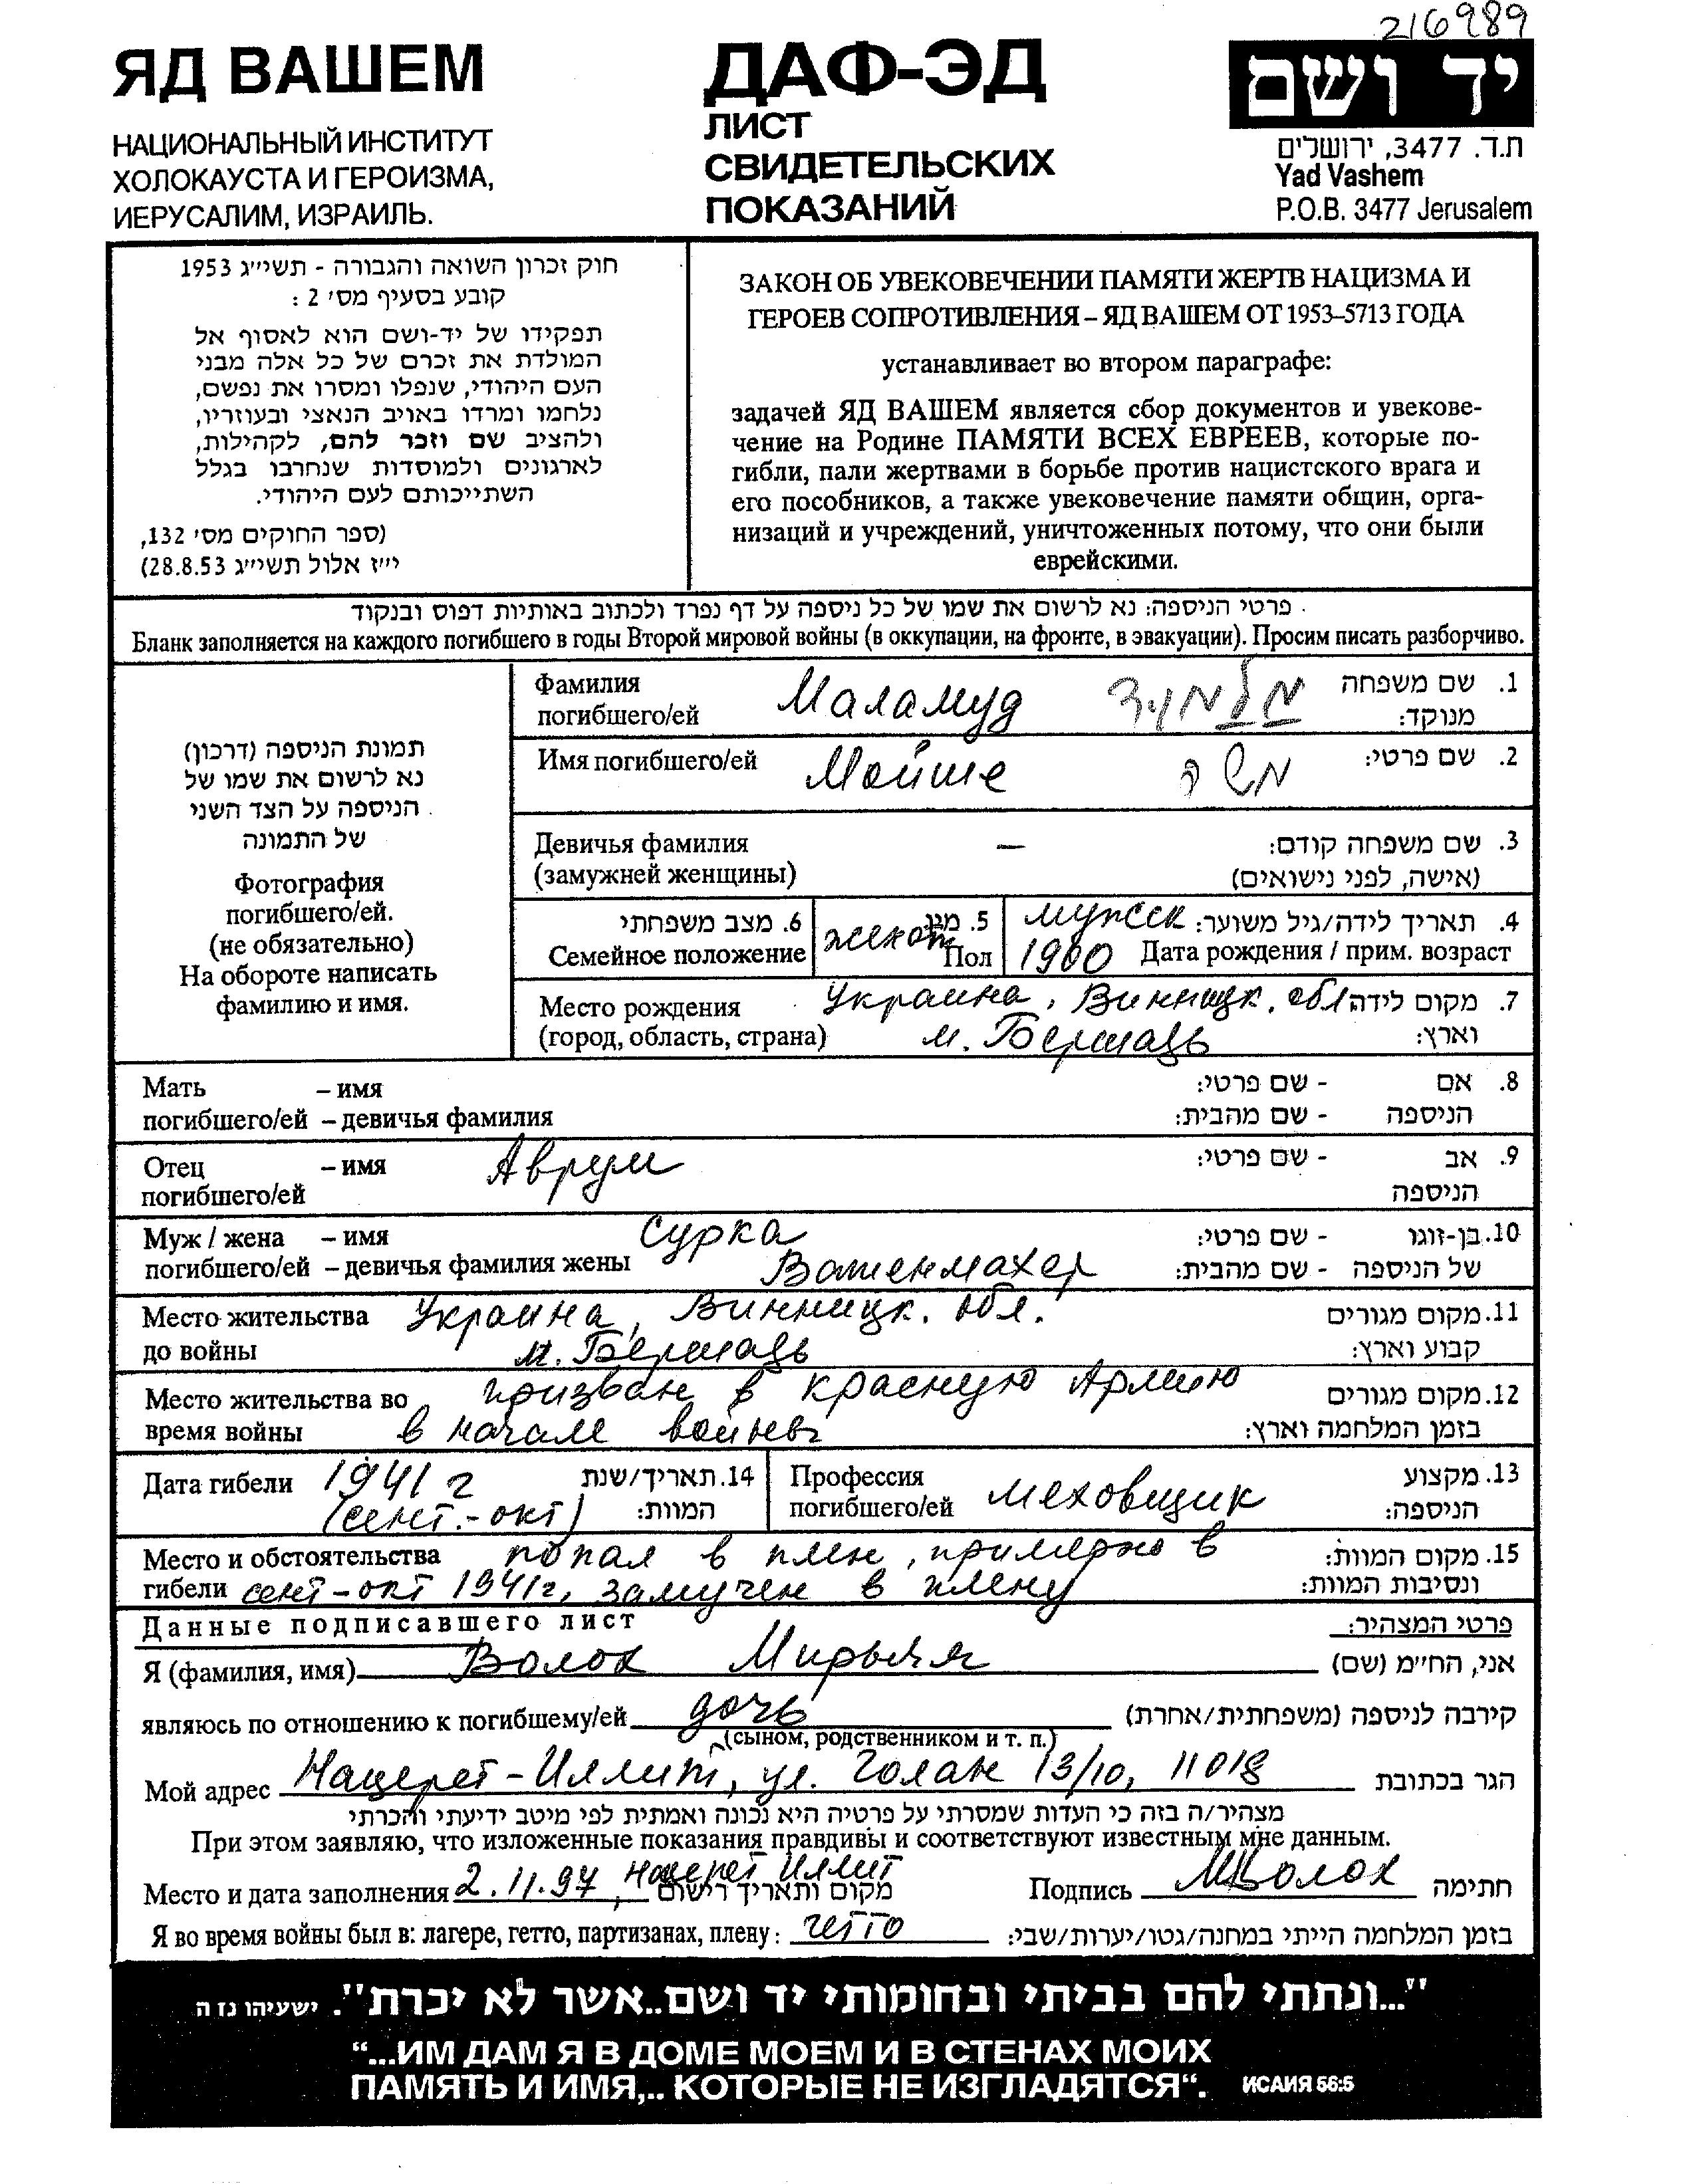 216989
ЯД ВАШЕМ
НАЦИОНАЛЬНЫЙ ИНСТИТУТ
ХОЛОКАУСТА И ГЕРОИЗМА,
ИЕРУСАЛИМ, ИЗРАИЛЬ.
ДАФ-ЭД
ЛИСТ
СВИДЕТЕЛЬСКИХ
ПОКАЗАНИЙ
יד ושם
ת.ד. 3477, ירושלים
Yad Vashem
P.O.B. 3477 Jerusalem
חוק זכרון השואה והגבורה - תשי״ג 1953
קובע בסעיף מס׳ 2 :
תפקידו של יד-ושם הוא לאסוף אל
המולדת את זכרם של כל אלה מבני
העם היהודי, שנפלו ומסרו את נפשם,
נלחמו ומרדו באויב הנאצי ובעוזריו,
ולהציב שם וזכר להם, לקהילות,
לארגונים ולמוסדות שנחרבו בגלל
השתייכותם לעם היהודי.
(ספר החוקים מס׳ 132,
י״ז אלול תשי״ג 28.8.53)
ЗАКОН ОБ УВЕКОВЕЧЕНИИ ПАМЯТИ ЖЕРТВ НАЦИЗМА И
ГЕРОЕВ СОПРОТИВЛЕНИЯ – ЯД ВАШЕМ ОТ 1953–5713 ГОДА
устанавливает во втором параграфе:
задачей ЯД ВАШЕМ является сбор документов и увекове-
чение на Родине ПАМЯТИ ВСЕХ ЕВРЕЕВ, которые по-
гибли, пали жертвами в борьбе против нацистского врага и
его пособников, а также увековечение памяти общин, орга-
низаций и учреждений, уничтоженных потому, что они были
еврейскими.
פרטי הניספה: נא לרשום את שמו של כל ניספה על דף נפרד ולכתוב באותיות דפוס ובנקוד
Бланк заполняется на каждого погибшего в годы Второй мировой войны (в оккупации, на фронте, в эвакуации). Просим писать разборчиво.
תמונת הניספה (דרכון)
נא לרשום את שמו של
הניספה על הצד השני
של התמונה
Фотография
погибшего/ей.
(не обязательно)
На обороте написать
фамилию и имя.
Фамилия Маламуд מלמוד 1. שם משפחה
погибшего/ей מנוקד:
Имя погибшего/ей Мойше משה 2. שם פרטי:
Девичья фамилия — 3. שם משפחה קודם:
(замужней женщины) (אישה, לפני נישואים)
6. מצב משפחתי женат 5. מין мужск 4. תאריך לידה/גיל משוער:
Семейное положение Пол 1900 Дата рождения / прим. возраст
Место рождения Украина, Винницк. обл 7. מקום לידה
(город, область, страна) м. Бершадь וארץ:
Мать – имя 8. אם - שם פרטי:
погибшего/ей – девичья фамилия הניספה - שם מהבית:
Отец – имя Аврум 9. אב - שם פרטי:
погибшего/ей הניספה
Муж / жена – имя Сурка 10. בן-זוגו - שם פרטי:
погибшего/ей – девичья фамилия жены Ватенмахер של הניספה - שם מהבית:
Место жительства Украина, Винницк. обл. 11. מקום מגורים
до войны м. Бершадь קבוע וארץ:
Место жительства во призван в красную Армию 12. מקום מגורים
время войны в начале войны בזמן המלחמה וארץ:
Дата гибели 1941 г 14. תאריך/שנת
(сент.-окт) המוות:
Профессия 13. מקצוע
погибшего/ей меховщик הניספה:
Место и обстоятельства попал в плен, примерно в 15. מקום המוות:
гибели сент-окт 1941г, замучен в плену ונסיבות המוות:
Данные подписавшего лист פרטי המצהיר:
Я (фамилия, имя) Волох Мирьям אני, הח״מ (שם)
являюсь по отношению к погибшему/ей дочь קירבה לניספה (משפחתית/אחרת)
(сыном, родственником и т. п.)
Мой адрес Нацерет-Иллит, ул. Голан 13/10, 11018 הגר בכתובת
מצהיר/ה בזה כי העדות שמסרתי על פרטיה היא נכונה ואמתית לפי מיטב ידיעתי והכרתי
При этом заявляю, что изложенные показания правдивы и соответствуют известным мне данным.
Место и дата заполнения 2.11.97, Нацерет Иллит מקום ותאריך רישום Подпись МВолох חתימה
Я во время войны был в: лагере, гетто, партизанах, плену: гетто בזמן המלחמה הייתי במחנה/גטו/יערות/שבי:
"...ונתתי להם בביתי ובחומותי יד ושם..אשר לא יכרת". ישעיהו נז ה
“...ИМ ДАМ Я В ДОМЕ МОЕМ И В СТЕНАХ МОИХ
ПАМЯТЬ И ИМЯ,.. КОТОРЫЕ НЕ ИЗГЛАДЯТСЯ“. ИСАИЯ 56:5